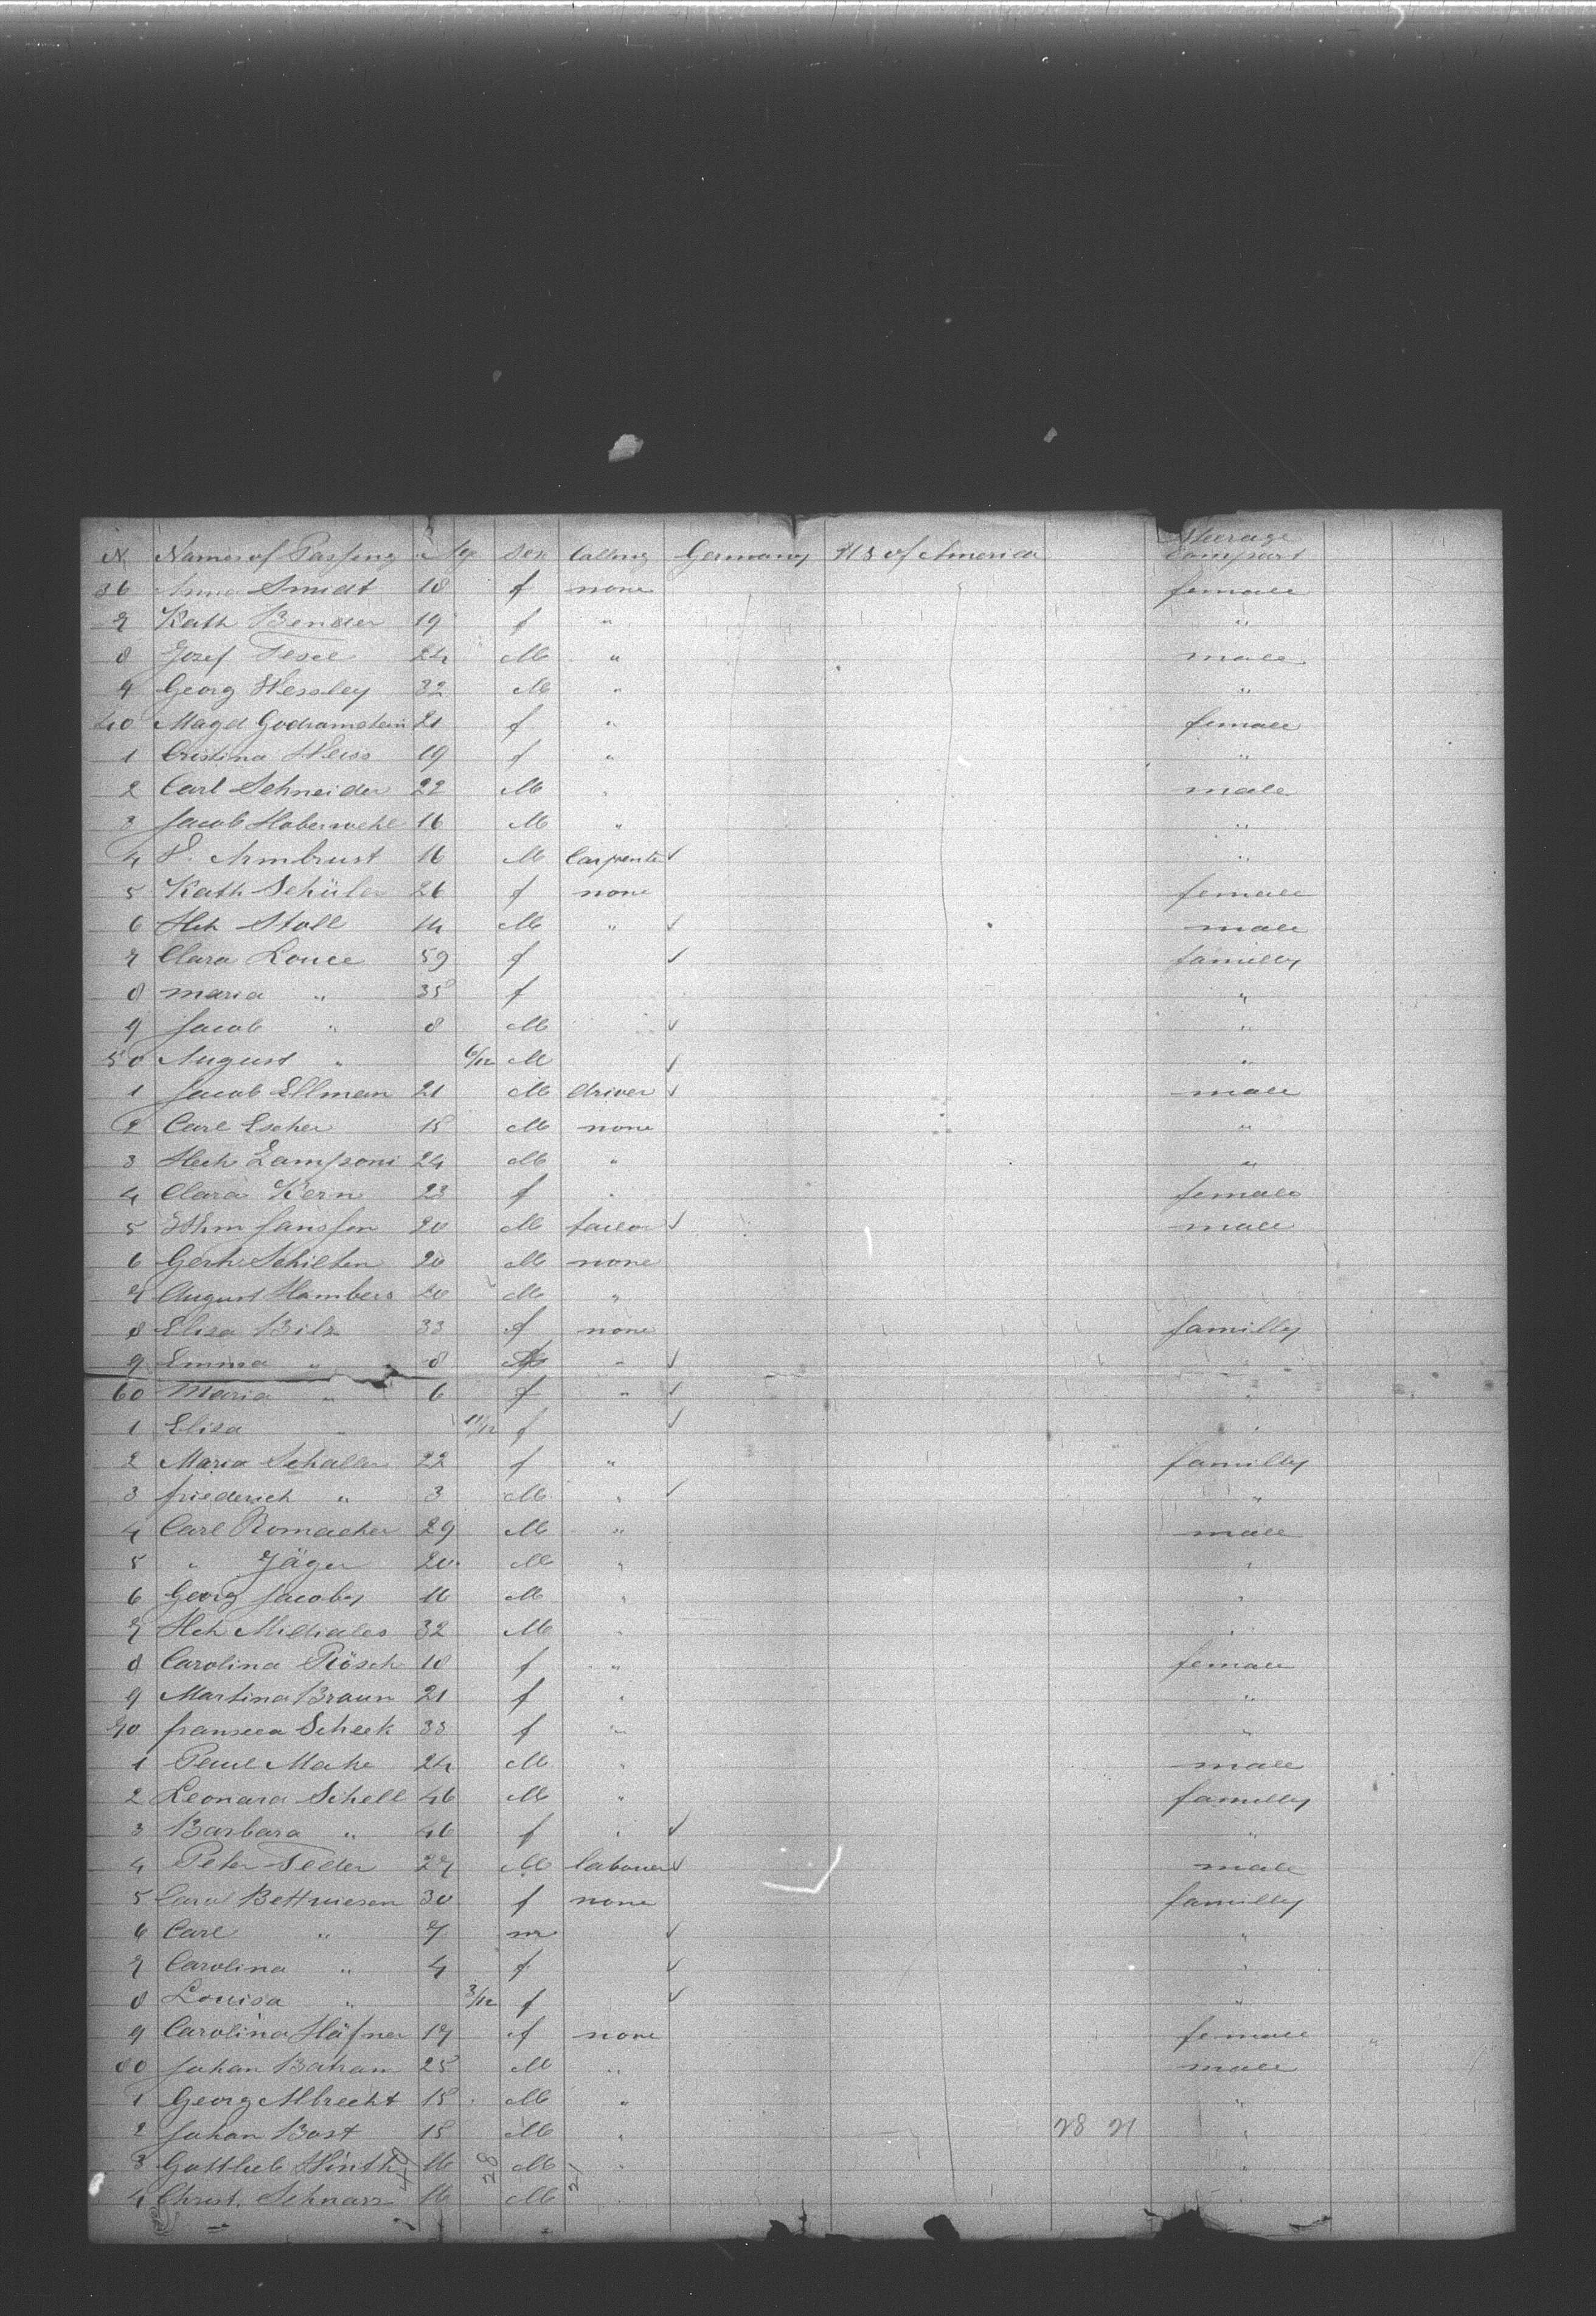 N Names of Passeng Age Sex Calling Germany U S of America Steerage Compart
36 Anna Smidt 18 f none female
7 Kath Bender 19 f " "
8 Josef 24 M " male
9 Georg Wessley 32 M " "
40 Magd Godramstein 21 f " female
1 Cristina Weiss 19 f " "
2 Carl Schneider 22 M " male
3 Jacob Haberwehl 16 M " "
4 Armbrust 16 M Carpenter "
5 Kath Schüler 26 f none female
6 Hch Stoll 14 M " male
7 Clara Louce 59 f familly
8 maria " 35 f "
9 Jacob " 8 M "
50 August " 6/12 M "
1 Jacob Ellman 21 M driver male
2 Carl Escher 15 M none "
3 Hech Lamponi 24 M " "
4 Clara Kern 23 f " female
5 Whm Janssen 20 M tailor male
6 Gerh Schilten 20 M none
7 August Hambers 20 M "
8 Elisa Bilz 33 f none familly
9 Emma " 8 f "
60 Maria " 6 f " "
1 Elisa " 11/12 f "
2 Maria Schaller 22 f " familly
3 friederich " 3 M " "
4 Carl Romacher 29 M " male
5 " Jäger 20 M " "
6 Georg Jacoby 16 M " "
7 Hch Michales 32 M " "
8 Carolina Rösch 18 f " female
9 Martina Braun 21 f " "
70 fransica Scheek 33 f " "
1 Paul Mahe 24 M " male
2 Leonard Schell 46 M " familly
3 Barbara " 46 f " "
4 Peter Feder 27 M labourer male
5 Carol Bettwiesen 30 f none familly
6 Carl " 7 m "
7 Carolina " 4 f "
8 Louisa " 3/12 f "
9 Carolina Häfner 17 f none female "
80 Johan Batram 25 M " male
1 Georg Albrecht 15 M " "
2 Johan Bast 15 M " 28 21 "
3 Gottlieb 16 28 M 21 " "
4 Christ. Schnarr 16 M "